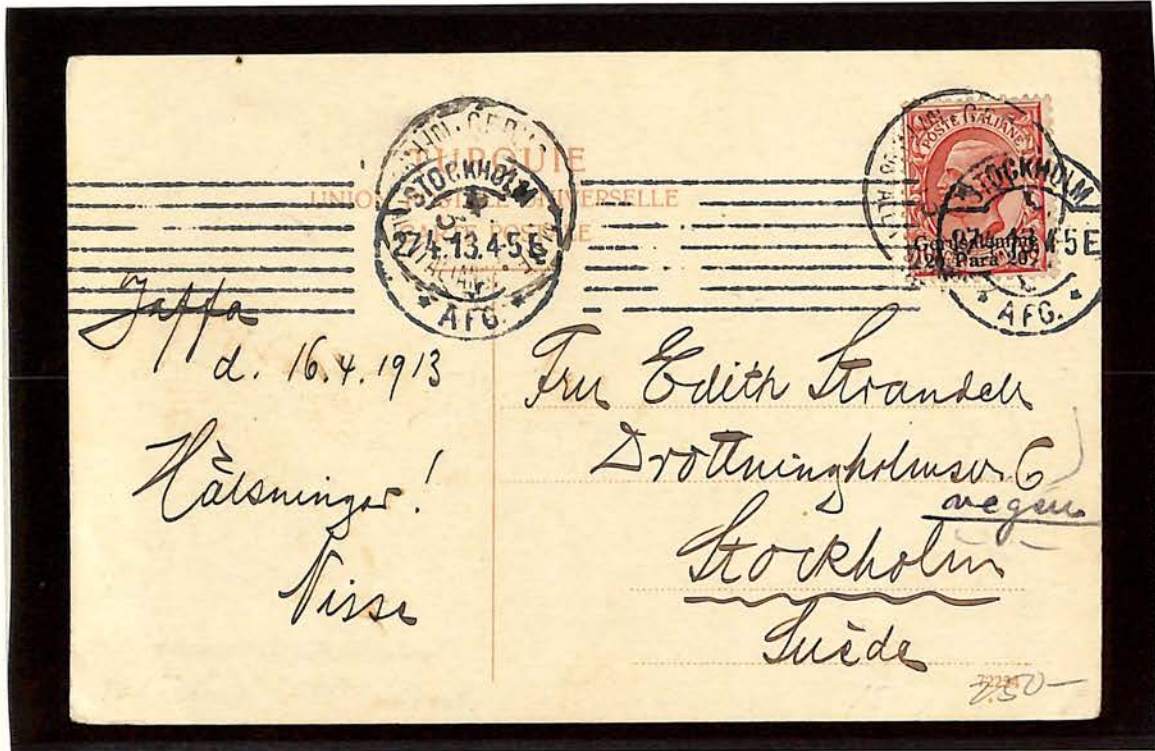 TURQUIE
UNION POSTALE UNIVERSELLE
CARTE POSTALE
STOCKHOLM
27.4.13.4-5 E
* AFG. *
POSTE ITALIANE
Gerusalemme
20 Para 20
STOCKHOLM
27.4.13.4-5 E
* AFG. *
Jaffa
d. 16.4.1913
Hälsningar!
Nisse
Fru Edith Strandell
Drottningholmsv. 6
vegen
Stockholm
Suède
250-